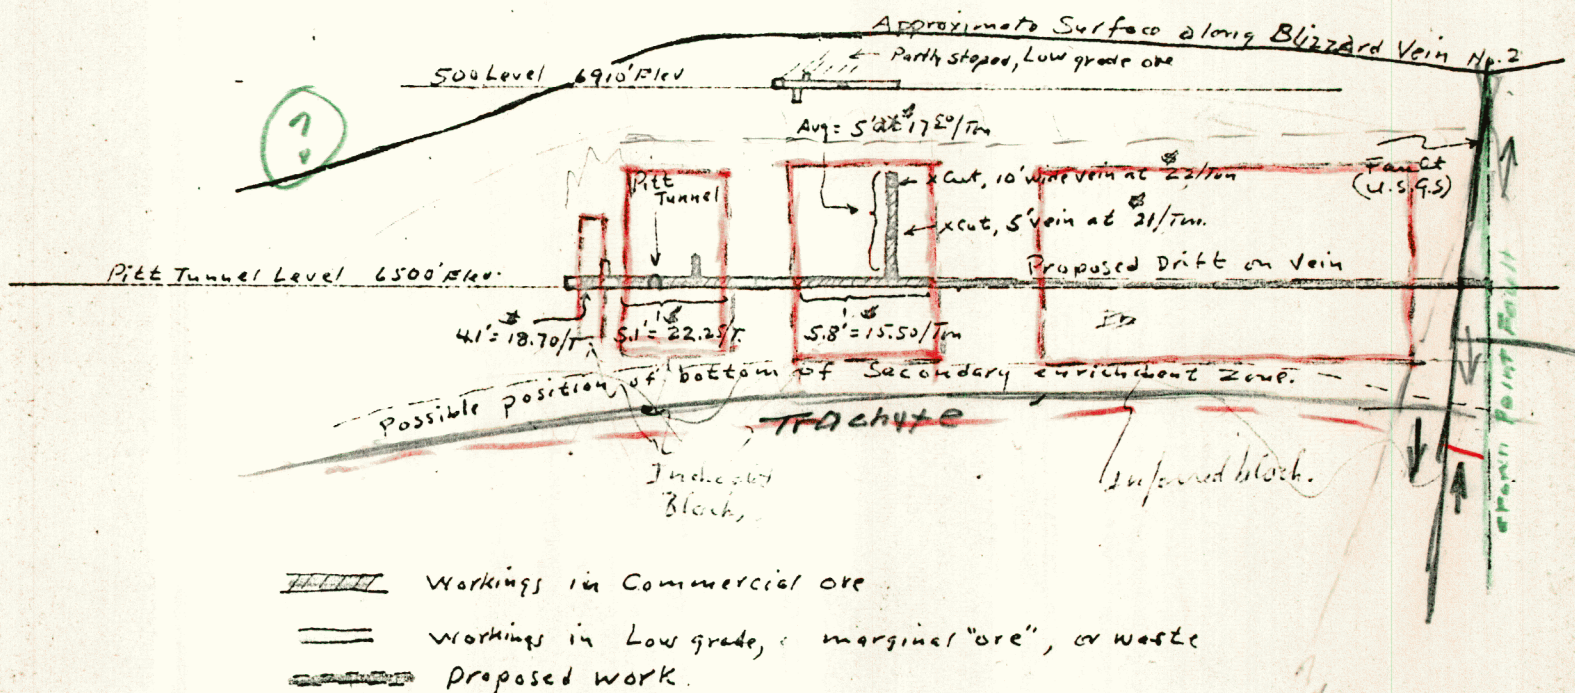 Approximate Surface along Blizzard Vein No. 2
Partly stoped, Low grade ore
500 Level 6910' Elev
?
Avg = 5' at $17 50/Ton
Fault
(U.S.G.S)
Pitt
Tunnel
xcut, 10' wide vein at $22/Ton
xcut, 5' vein at $21/Ton.
Pitt Tunnel Level 6500' Elev.
Proposed Drift on Vein
4.1' = $18.70/T
5.1' = $22.25/T.
5.8' = $15.50/Ton
Possible position of bottom of Secondary enrichment Zone.
Trachyte
Block,
Inferred block.
Point Fault
Workings in Commercial ore
Workings in Low grade, marginal "ore", or waste
Proposed work.